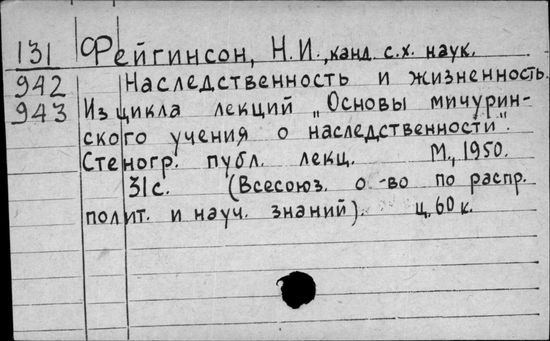 131 Фейгинсон, Н.И., канд. с.х. наук.
942 Наследственность и жизненность.
943 Из цикла лекций „Основы мичурин-
ского учения о наследственности".
Стеногр. публ. лекц. М., 1950.
31с. (Всесоюз. о-во по распр.
полит. и науч. знаний). ц. 60 к.